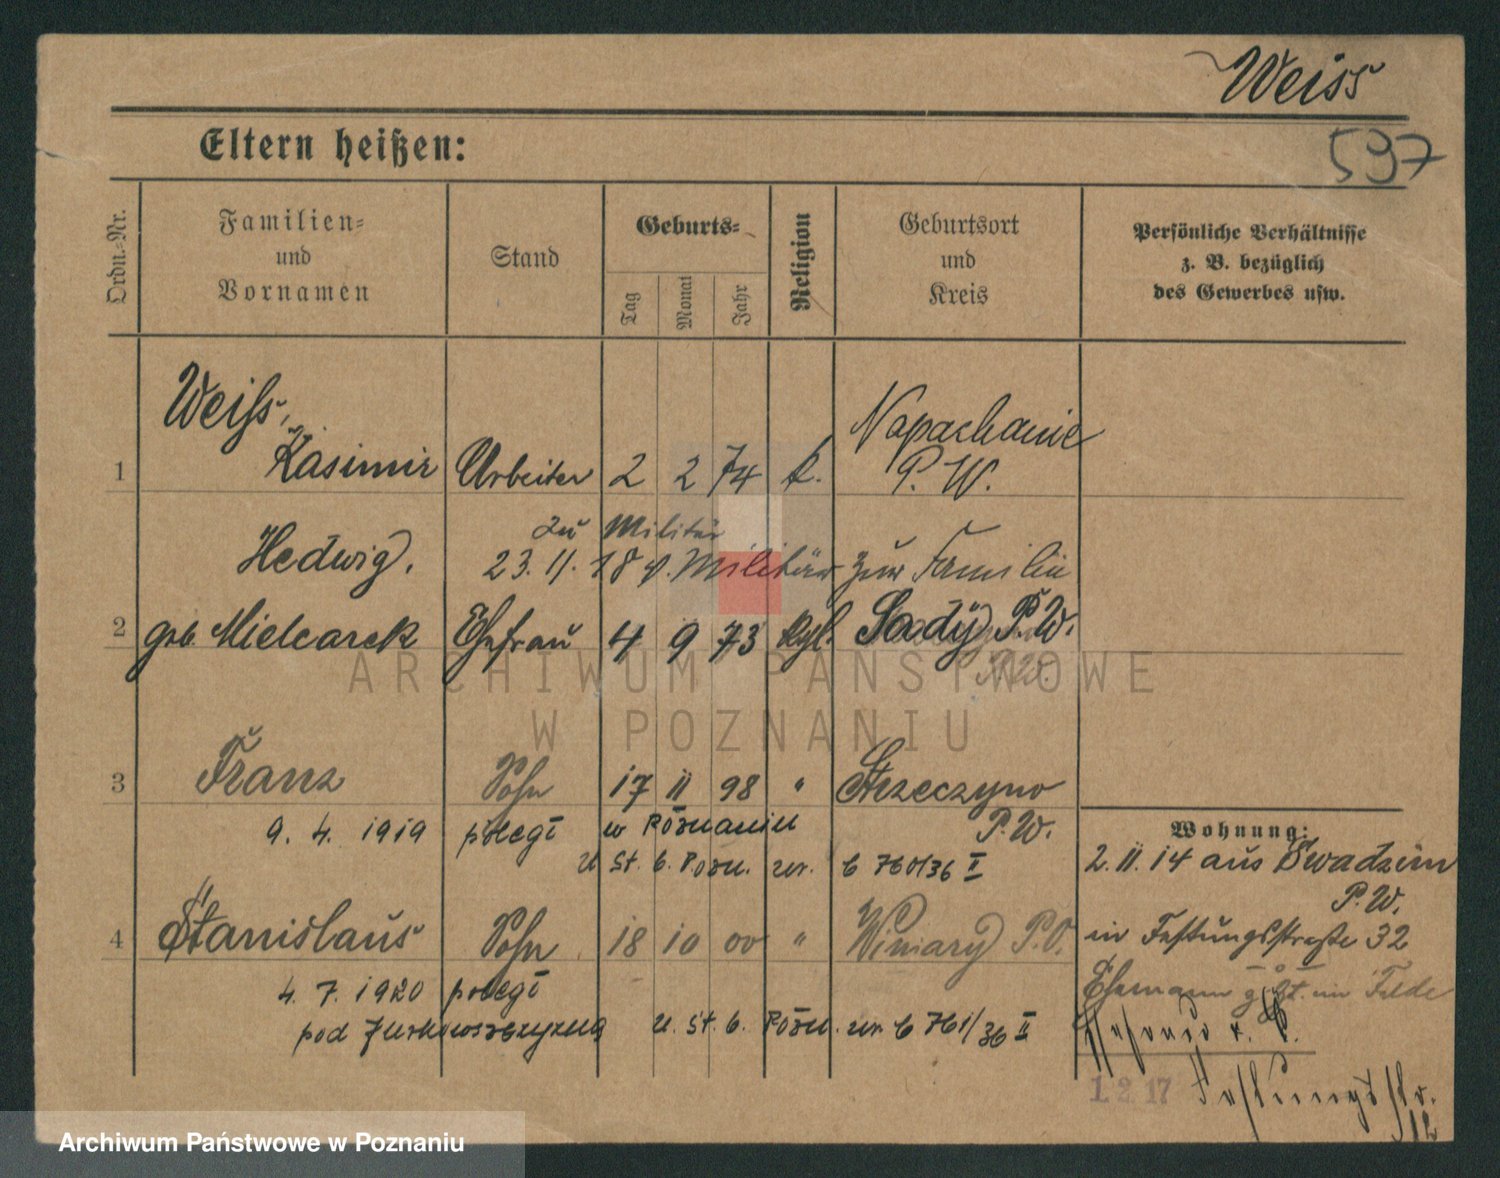 Weiss
597
Eltern heißen:
Ordn.-Nr.
Familien-
und
Vornamen
Stand
Geburts-
Tag
Monat
Jahr
Religion
Geburtsort
und
Kreis
Persönliche Verhältnisse
z. B. bezüglich
des Gewerbes usw.
Weiss,
1 Kasimir Arbeiter 2 2 74 k. Napachanie
P. W.
zu Militär
Hedwig, 23. 11. 18 v. Militär zur Familie
2 geb. Mielcarek Ehefrau 4 9 73 kgl. Sady P. W.
P. W.
3 Franz Sohn 17 11 98 " Strzeczyno
P. W.
9. 4. 1919 poległ w Poznaniu
U. St. C. Pozn. nr. C 760/36 II
4 Stanislaus Sohn 18 10 00 " Winiary P. O.
4. 7. 1920 poległ
pod U. St. C. Pozn. nr C 761/36 II
Wohnung:
2. 11. 14 aus Swadzim
P. W.
in Festungsstraße 32
Ehemann z. Zt. im Felde
1 2 17 Festungsstr.
12
ARCHIWUM PAŃSTWOWE
W POZNANIU
Archiwum Państwowe w Poznaniu